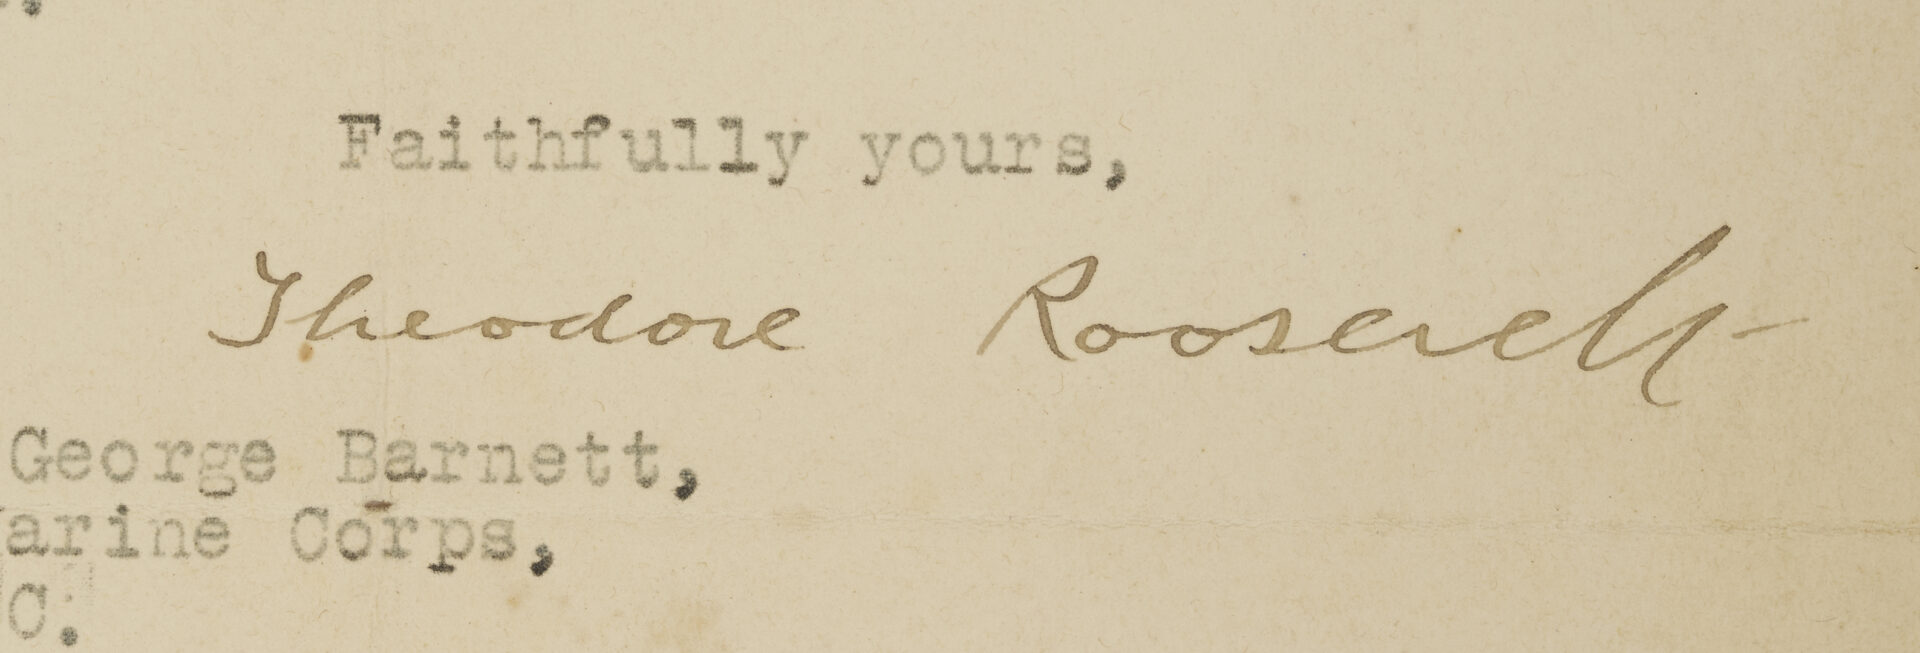 Faithfully yours,
Theodore Roosevelt
George Barnett,
arine Corps,
C.